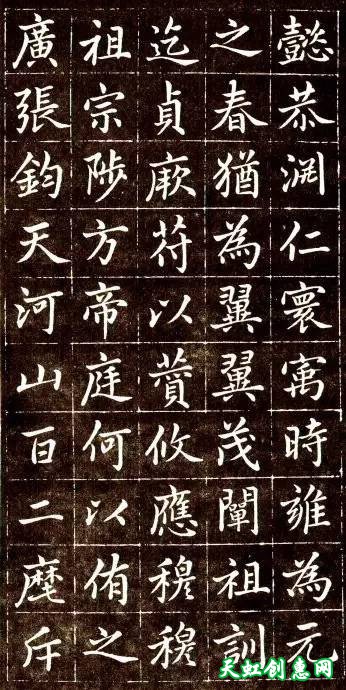 懿恭渊仁寰寓時雍為元
之春猶為翼翼茂闡祖訓
迄貞厥苻以攸應穆穆
祖宗陟方帝庭何以侑之
廣張鈞天河山百二麾斥
天虹创惠网